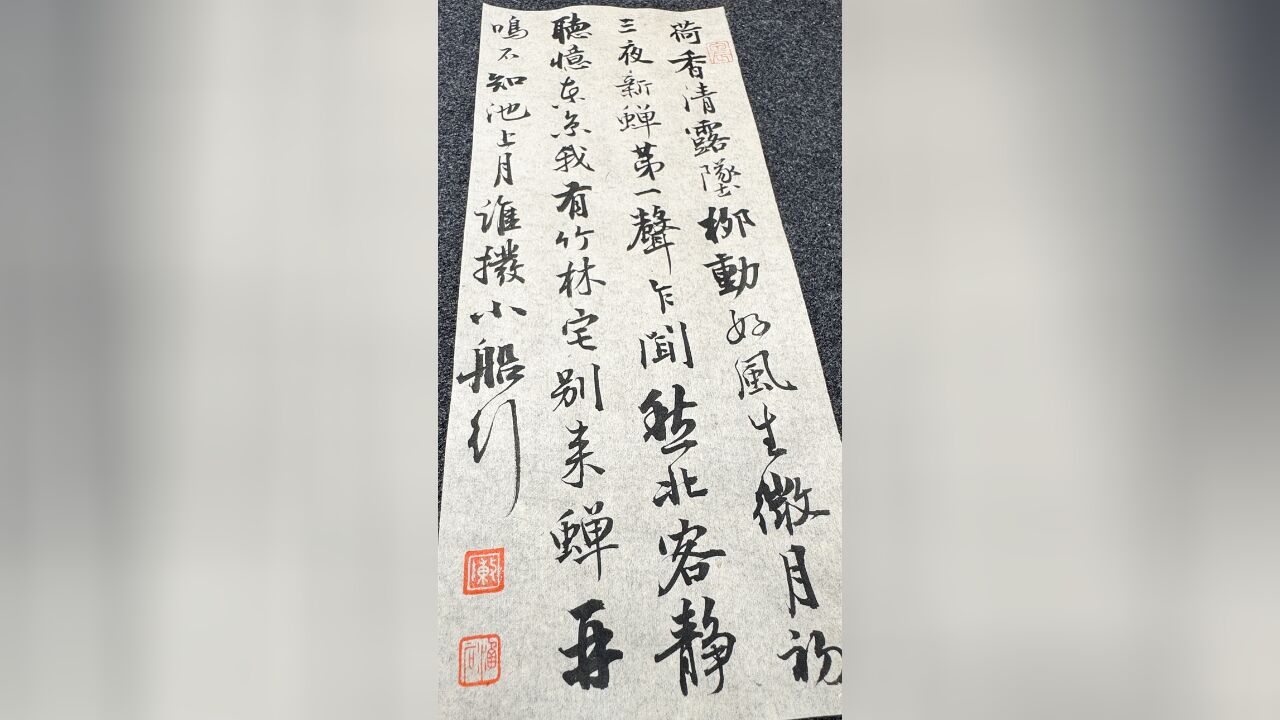 荷香清露墜柳動好風生微月初
三夜新蟬第一聲乍聞愁北客靜
聽憶東京我有竹林宅别来蟬再
鳴不知池上月誰撥小船行